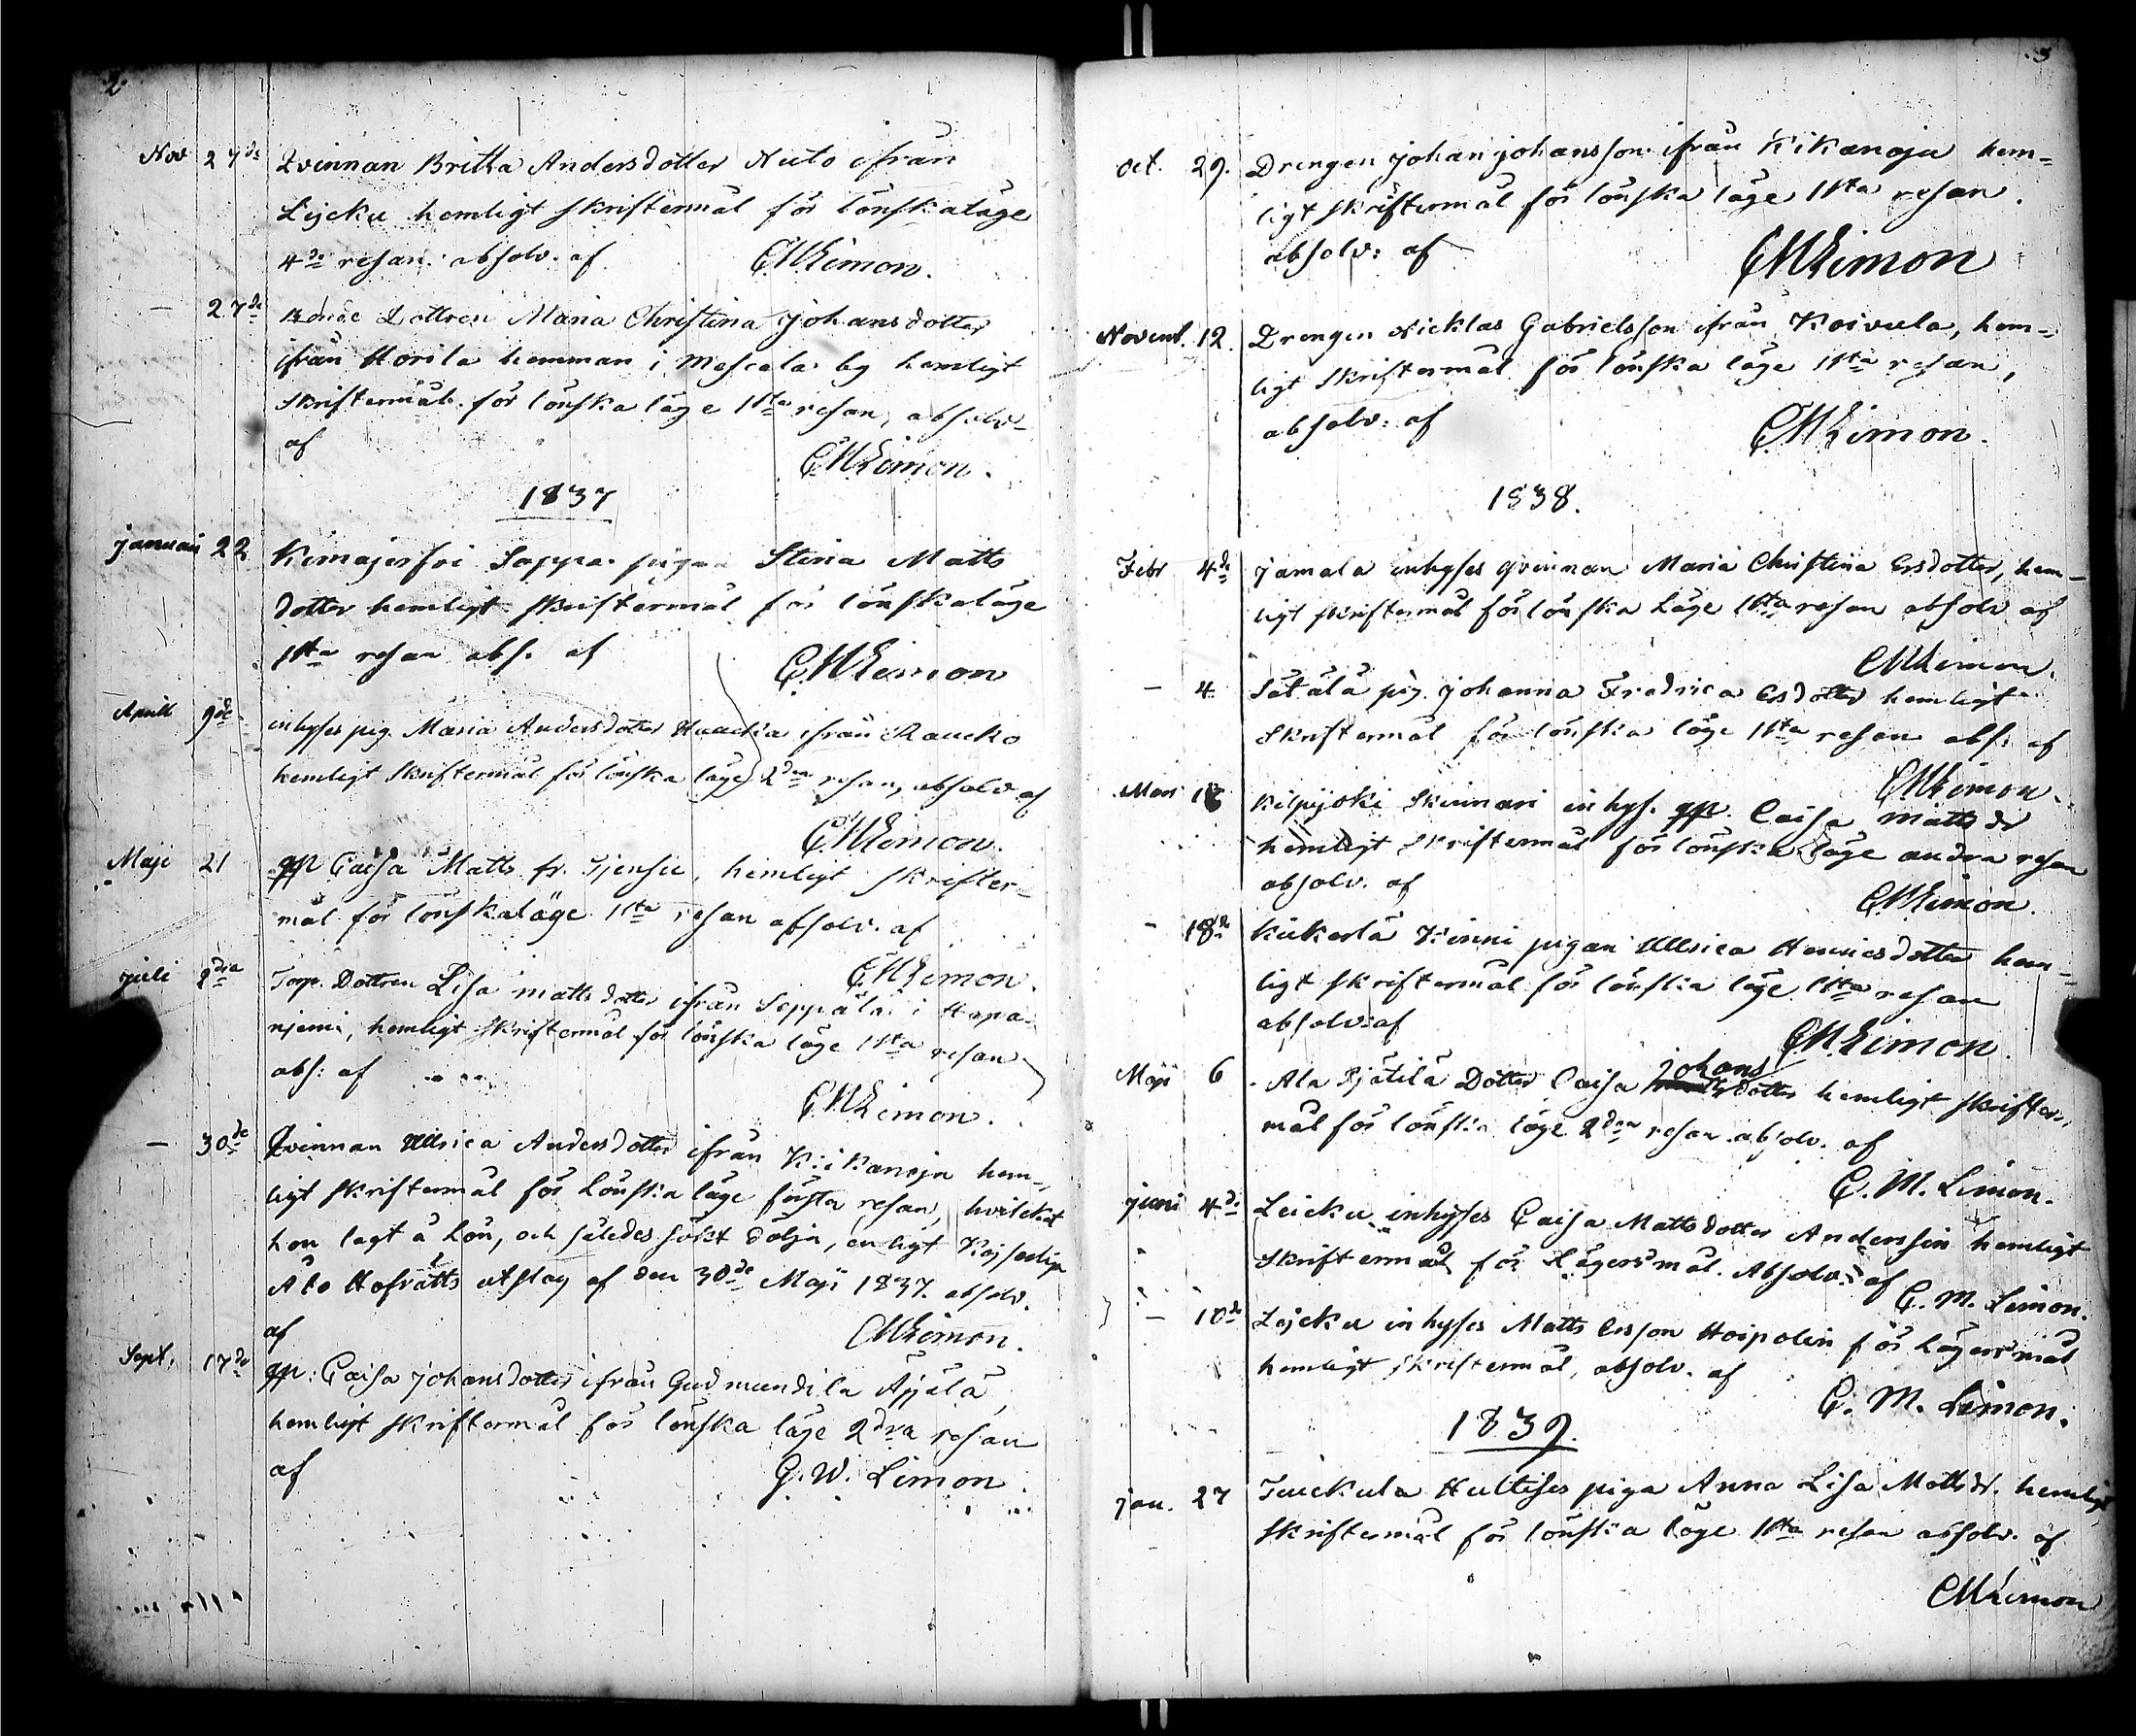 2.
Nov 27de Qvinnan Britta Andersdotter Auto ifrån
Lejcku hemligt skriftermål för lönskaläge
4de resan absolv. af CMLimon.
— 27de Bonde Dottren Maria Christina Johansdotter
ifrån Horila hemman i Mescala by hemligt
skriftermål för lönska läge 1sta resan, absolv.
af CMLimon.
1837
Januari 22 Kemajerfvi Sappa pigan Stina Matts
dotter hemligt skriftermål för lönskaläge
1sta resan abs. af CMLimon
Aprill 9de inhyses pig. Maria Andersdotter ifrån Raucko
hemligt skriftermål för lönska läge 2dra resan, absolv af
CMLimon.
Maji 21 qp Caisa Matts fr. hemligt skrifter-
mål för lönskaläge 1sta resan absolv. af
CMLimon.
Juli 2dra Torp. Dottren Lisa Mattsdotter ifrån Seppälä i Hapa-
njemi, hemligt skriftermål för lönska läge 1sta resan
abs: af
CMLimon.
— 30de Qvinnan Ullrica Andersdotter ifrån Kikanoja hem-
ligt skriftermål för Lönska läge första resan, hvilcket
hon lagt å Lön, och således sökt dölja, enligt Kejserliga
Åbo Hofrätts utslag af den 30de Maji 1837. absolv.
af CMLimon.
Sept. 17de qp: Caisa Johansdotter ifrån Gudmundila Äjjälä,
hemligt skriftermål för lönska läge 2dra resan
af G. W. Limon
3
Oct. 29. Drengen Johan Johansson ifrån Kikanoja hem-
ligt skriftermål för lönska läge 1sta resan.
absolv: af CMLimon
Novemb. 12. Drengen Nicklas Gabrielsson ifrån Koivula, hem-
ligt skriftermål för lönska läge 1sta resan,
absolv: af CMLimon.
1838.
Febr 4de Jamala inhyses qvinnan Maria Christina Ersdotter, hem-
ligt skriftermål för lönska läge 1sta resan absolv af
CMLimon.
— 4. Sätälä pig. Johanna Fredrica Ersdotter hemligt
skriftermål för lönska läge 1sta resan abs: af
CMLimon.
Mars 18 Kilpijoki Skinnari inhys. qp. Caisa Mattsdr
hemligt skriftermål för lönska läge andra resan
absolv. af CMLimon.
— 18de Kukola Kinni pigan Ullrica Henricsdotter hem-
ligt skriftermål för lönska läge 1sta resan
absolv: af CM.Limon.
Maji 6 Ala Pjätilä Dotter Caisa Johansdotter hemligt skrifter-
mål för lönska läge 2dra resan absolv. af
C. M. Limon.
Juni 4de Leicku inhyses Caisa Mattsdotter Anderssin hemligt
skriftermål för Lägersmål. Absolv: af
C. M. Limon.
— 10de Lejcku inhyses Matts Ersson Hoipolin för Lägersmål
hemligt skriftermål, absolv. af
C. M. Limon.
1839.
Jan. 27 Tuickula Hultises piga Anna Lisa Mattsdr. hemligt
skriftermål för lönska läge 1sta resan absolv. af
CMLimon